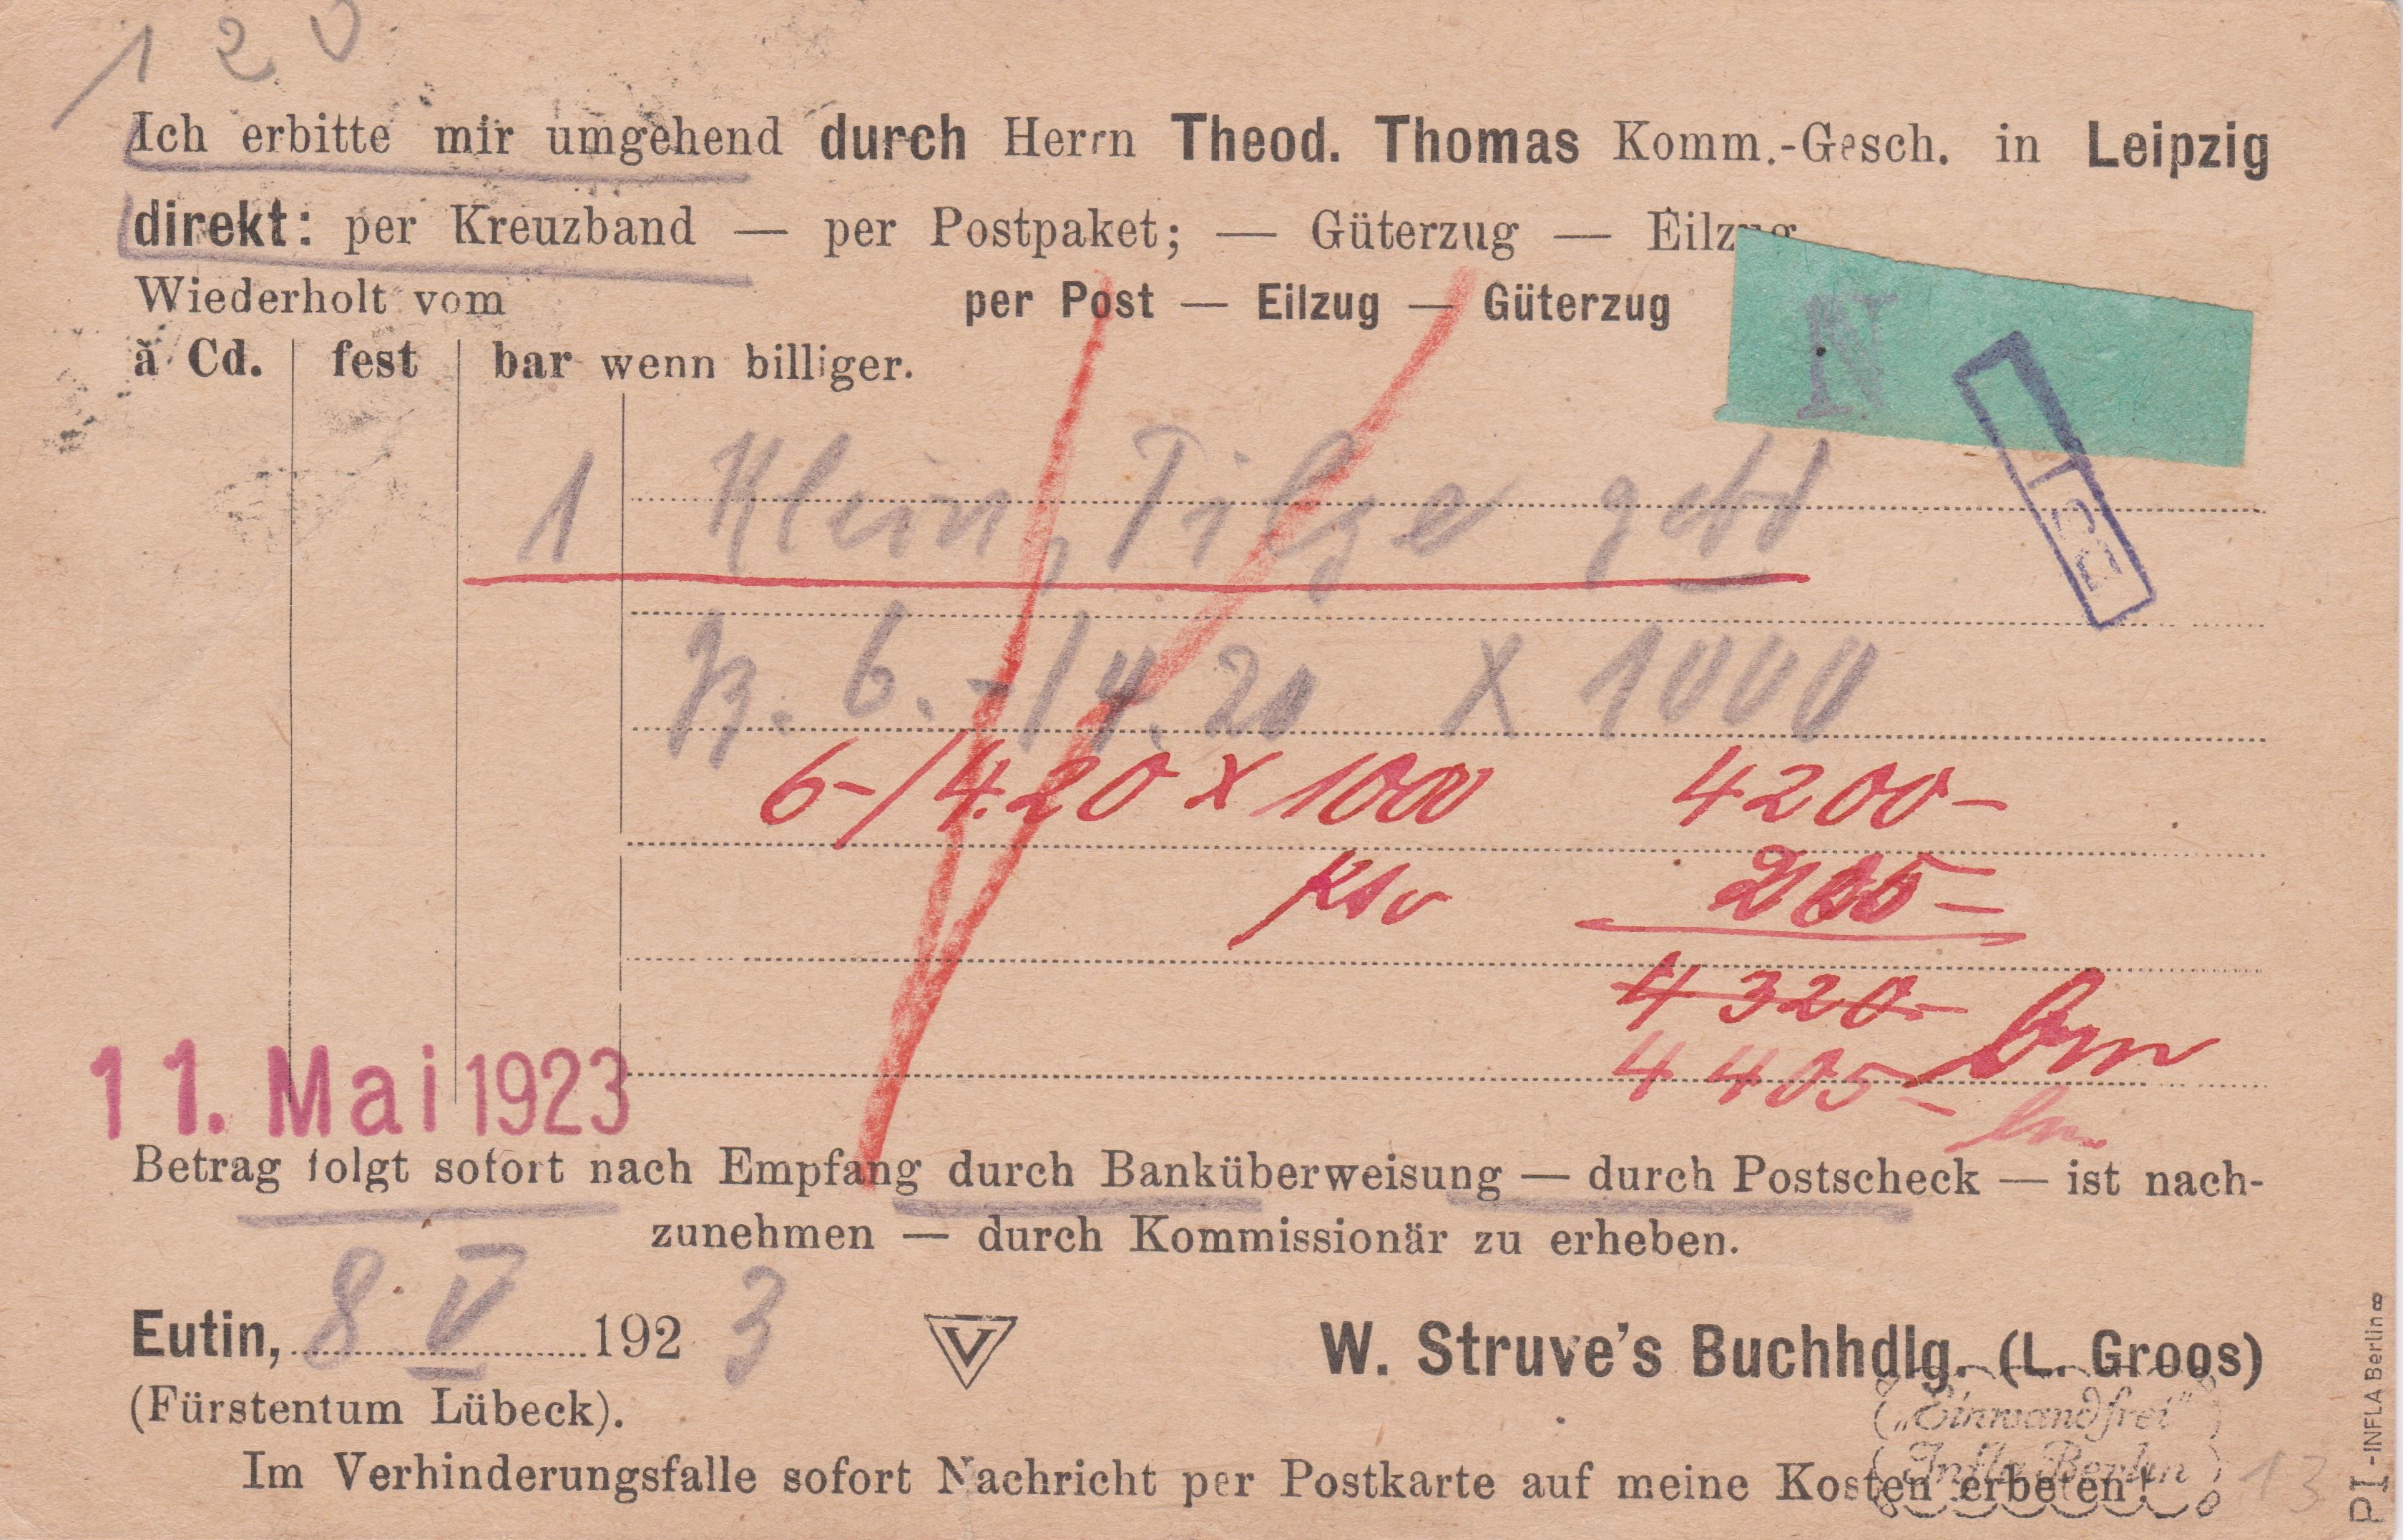 120
Ich erbitte mir umgehend durch Herrn Theod. Thomas Komm.-Gesch. in Leipzig
direkt: per Kreuzband — per Postpaket; — Güterzug — Eilzug
Wiederholt vom per Post — Eilzug — Güterzug
N
à Cd. fest bar wenn billiger.
1 Klein, Pilze gebd
6.-/4.20 X 1000
6-/4.20 x 1000 4200-
205-
4320-
4405-
11. Mai 1923
Betrag folgt sofort nach Empfang durch Banküberweisung — durch Postscheck — ist nach-
zunehmen — durch Kommissionär zu erheben.
Eutin, 8. V 1923 V W. Struve's Buchhdlg. (L. Groos)
(Fürstentum Lübeck).
„Einwandfrei"
Infla Berlin
Im Verhinderungsfalle sofort Nachricht per Postkarte auf meine Kosten erbeten!
13
PI-INFLA Berlin ∞